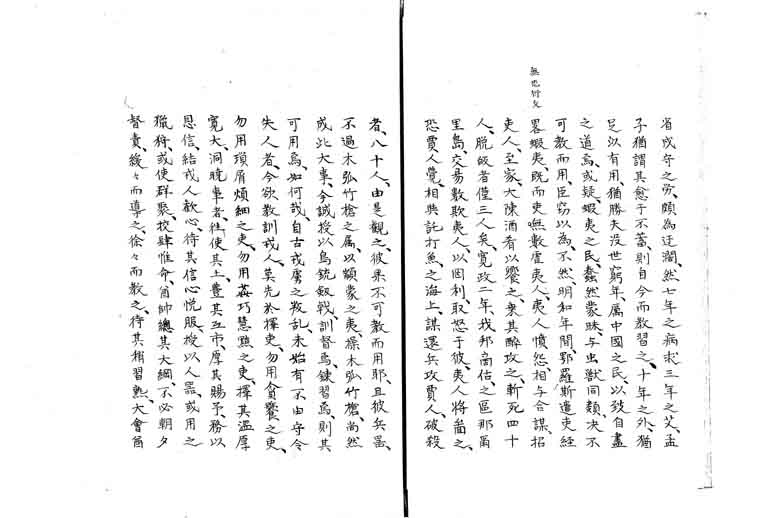 省戍守之労、頗為迂濶、然七年之病求三年之艾、孟
子猶謂其愈于不蓄、則自今而教習之、十年之外、猶
足以有用、猶勝夫没世窮年、属中國之民、以弢自盡
之道焉、或疑蝦夷之民、蠢然蒙昧、与虫獣同類、决不
可教而用、臣窃以為不然、明和年間、鄂羅斯遣吏経
畧蝦夷、既而吏無數虐夷人、夷人憤怨、相与合謀、招
無也衍文
吏人至家、大陳酒肴以饗之、乗其酔攻之、斬死四十
人、脱皈者僅三人矣、寛政二年、我邦商估、之邑那爾
里島、交易數欺夷人、以罔利、取怒于彼、夷人将啚之、
恐賈人覺、相與託打魚之海上、謀還兵攻賈人、破殺
者、八十人、由是觀之、彼果不可教而用耶、且彼兵噐、
不過木弘竹槍之属、以顓蒙之夷、操木弘竹槍、尚然
成此大事、今誠授以鳥銃釼戟、訓督焉、錬習焉、則其
可用焉、如何哉、自古戎虜之叛乱、未始有不由守令
失人者、今欲教訓戎人、莫先於擇吏、勿用貪饕之吏、
勿用瑣屑煩細之吏、勿用姦巧慧黠之吏、擇其温厚
寛大、洞暁事者、往使其土、豊其互市、厚其賜予、務以
恩信、結戎人歓心、待其信心悦服、授以人噐、或用之
獵狩、或使群聚、校肆惟命、酋帥總其大綱、不必朝夕
督責、緩々而導之、徐々而教之、待其稍習熟、大會酋